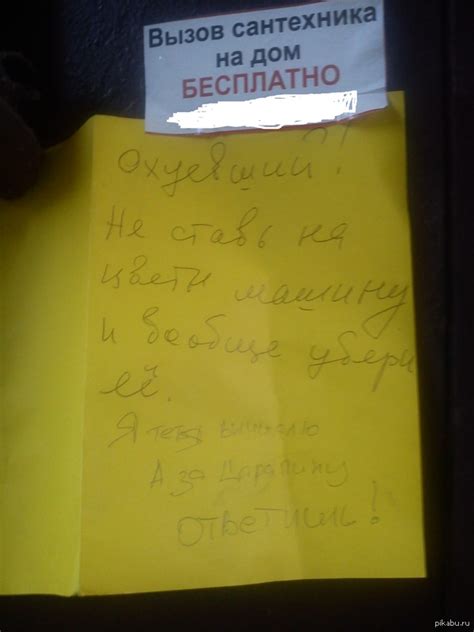 Вызов сантехника
на дом
БЕСПЛАТНО
Охуевший?!
Не ставь на
цветы машину
и вообще убери
её.
Я тебя вычислю
А за царапину
ответишь!
pikabu.ru